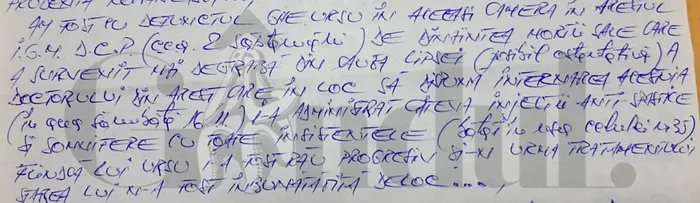 AM FOST CU DEȚINUTUL GHE. URSU ÎN ACEEAȘI CAMERĂ ÎN ARESTUL
I.G.M. D.C.P. (cca. 2 săptămâni) DE DINAINTEA MORȚII SALE CARE
A SURVENIT MAI DEGRABĂ DIN CAUZA LIPSEI (posibil ostentativă) A
DOCTORULUI DIN AREST CARE ÎN LOC SĂ DISPUNĂ INTERNAREA ACESTUIA
(în cea sâmbătă 16.11.) I-A ADMINISTRAT CÂTEVA INJECȚII ANTI-SPASTICE
ȘI SOMNIFERE CU TOATE INSISTENȚELE (soției în ușa celulei nr. 35)
FIINDCĂ LUI URSU I-A FOST RĂU PROGRESIV ȘI-N URMA TRATAMENTULUI
STAREA LUI N-A FOST ÎMBUNĂTĂȚITĂ DELOC....,
Gândul.